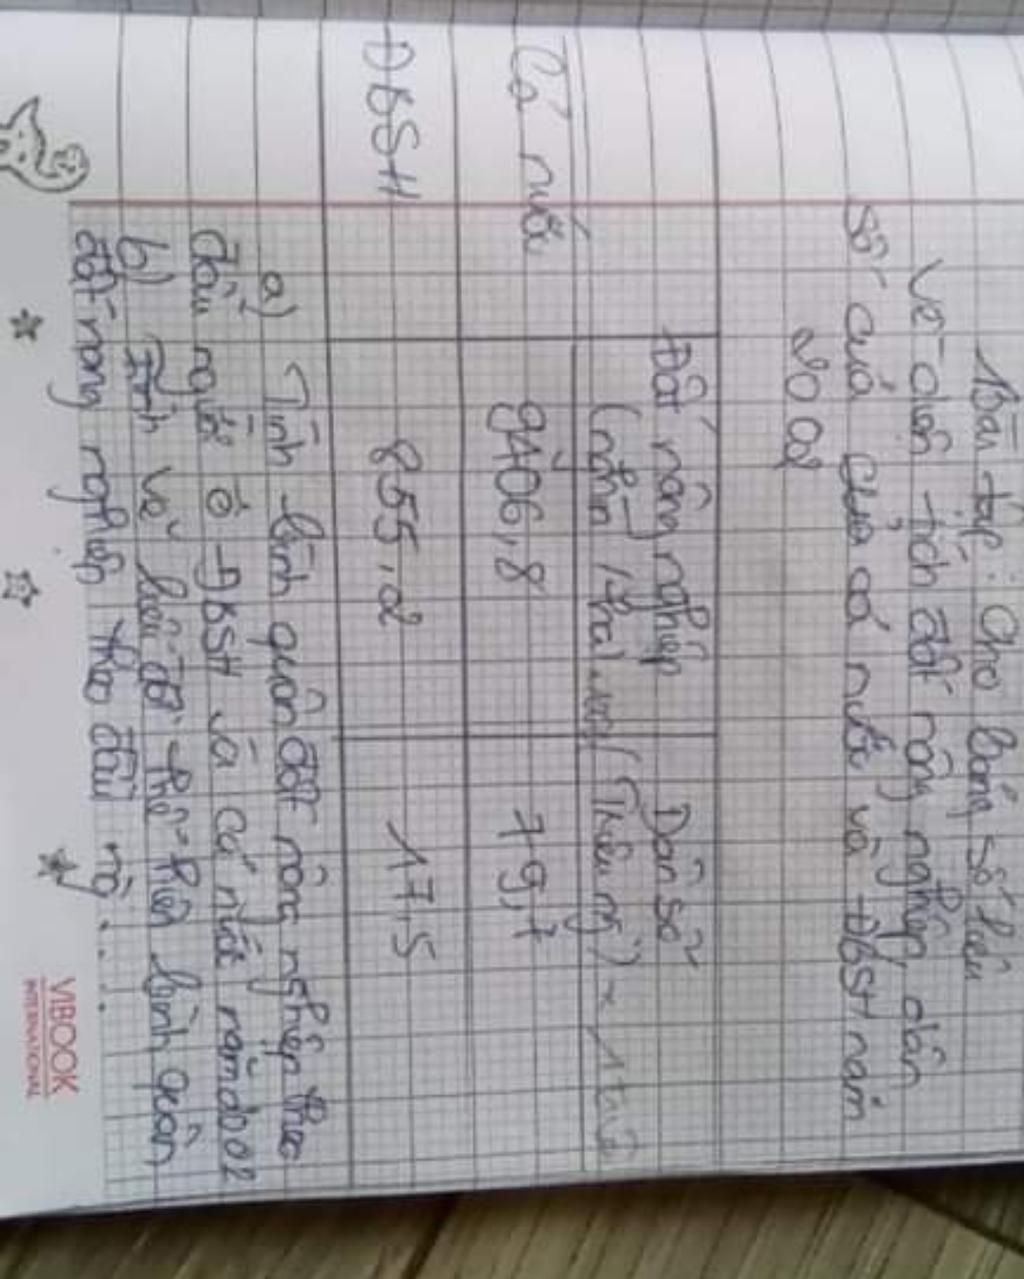 Bài tập: Cho bảng số liệu
Về diện tích đất nông nghiệp, dân
số của của cả nước và ĐBSH năm
2002
Đất nông nghiệp Dân số
(nghìn / ha) (Triệu ng)
Cả nước 9406,8 79,7
ĐBSH 855,2 17,5
a) Tính bình quân đất nông nghiệp theo
đầu người ở ĐBSH và cả nước năm 2002
b) vẽ biểu đồ thể hiện bình quân
đất nong nghiệp theo đầu ng.....
VIBOOK
INTERNATIONAL